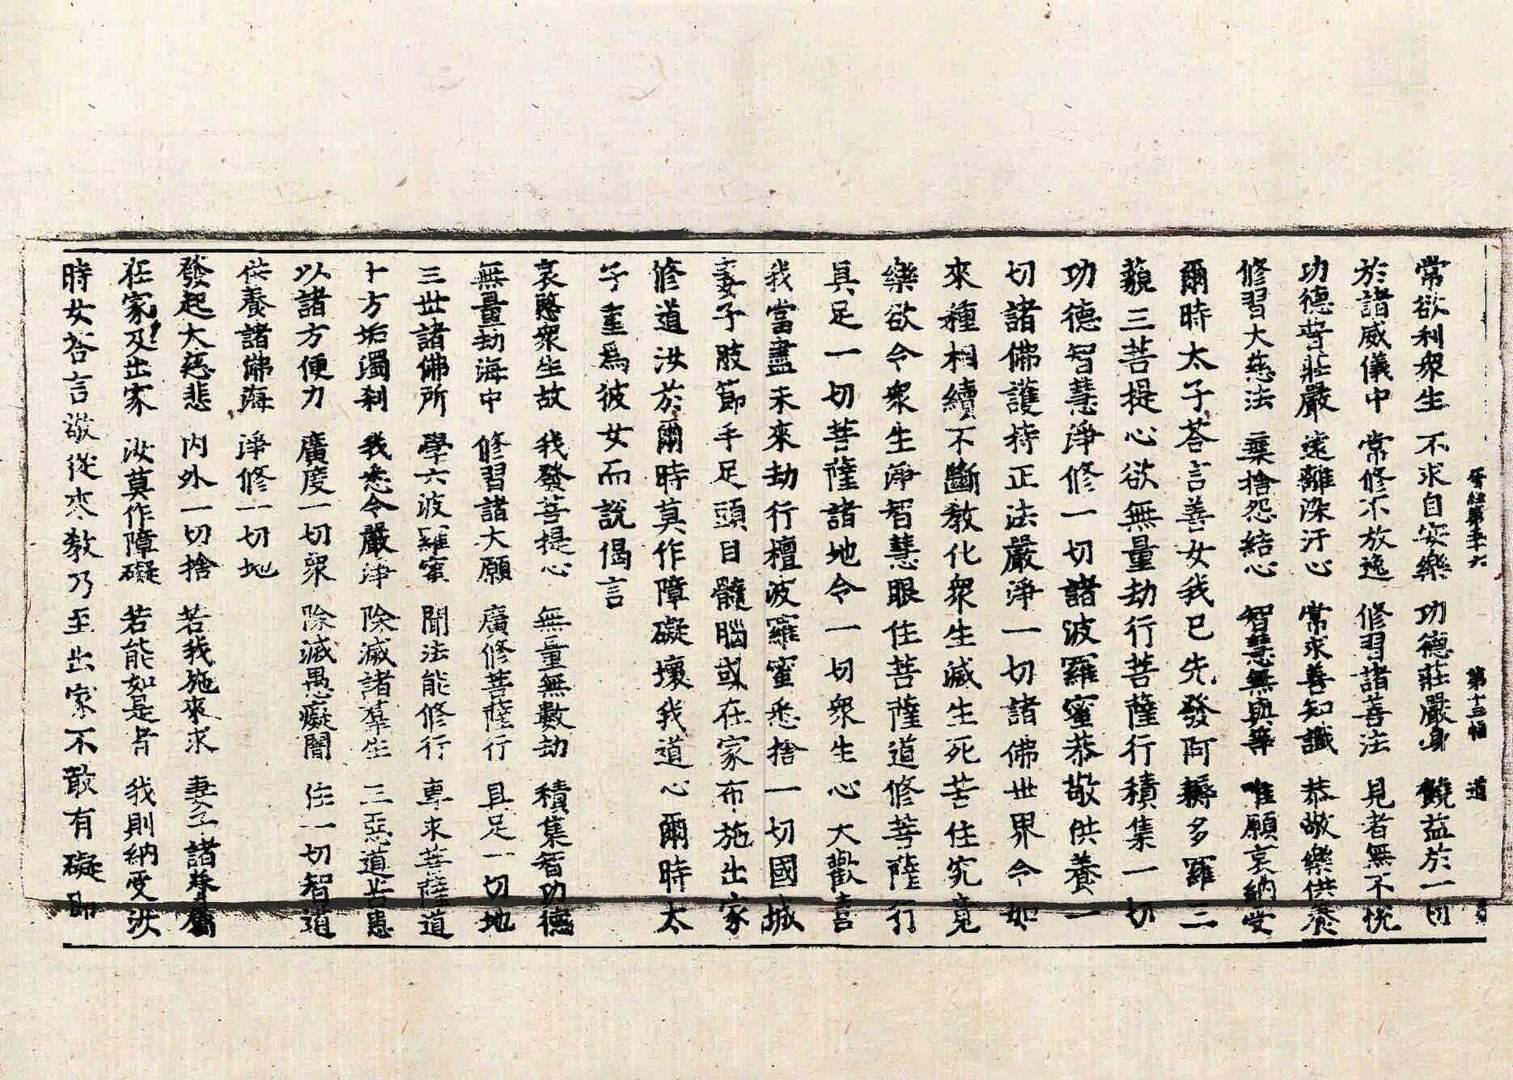 晉經第五十六　第十三幅　道
常欲利衆生　不求自安樂　功德莊嚴身　饒益於一切
於諸威儀中　常修不放逸　修習諸善法　見者無不悅
功德普莊嚴　遠離染汙心　常求善知識　恭敬樂供養
修習大慈法　棄捨怨結心　智慧無與等　唯願哀納受
爾時太子荅言善女我已先發阿耨多羅三
藐三菩提心欲無量劫行菩薩行積集一切
功德智慧淨修一切諸波羅蜜恭敬供養一
切諸佛護持正法嚴淨一切諸佛世界令如
來種相續不斷敎化衆生滅生死苦住究竟
樂欲令衆生淨智慧眼住菩薩道修菩薩行
具足一切菩薩諸地令一切衆生心大歡喜
我當盡未來劫行檀波羅蜜悉捨一切國城
妻子肢節手足頭目髓腦或在家布施出家
修道汝於爾時莫作障礙壞我道心爾時太
子重爲彼女而說偈言
哀愍衆生故　我發菩提心　無量無數劫　積集智功德
無量劫海中　修習諸大願　廣修菩薩行　具足一切地
三世諸佛所　學六波羅蜜　聞法能修行　專求菩薩道
十方垢濁刹　我悉令嚴淨　除滅諸羣生　三惡道苦患
以諸方便力　廣度一切衆　除滅愚癡闇　住一切智道
供養諸佛海　淨修一切地
發起大慈悲　內外一切捨　若我施來求　妻子諸眷屬
在家及出家　汝莫作障礙　若能如是者　我則納受汝
時女荅言敬從來敎乃至出家不敢有礙即